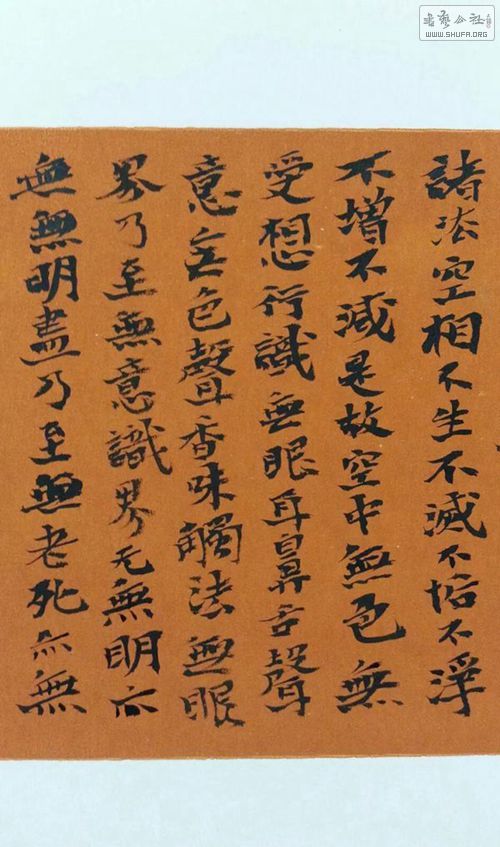 諸法空相不生不滅不垢不淨
不增不減是故空中無色無
受想行識無眼耳鼻舌聲
意無色聲香味觸法無眼
界乃至無意識界无無明亦
無無明盡乃至無老死亦無
書藝公社
WWW.SHUFA.ORG